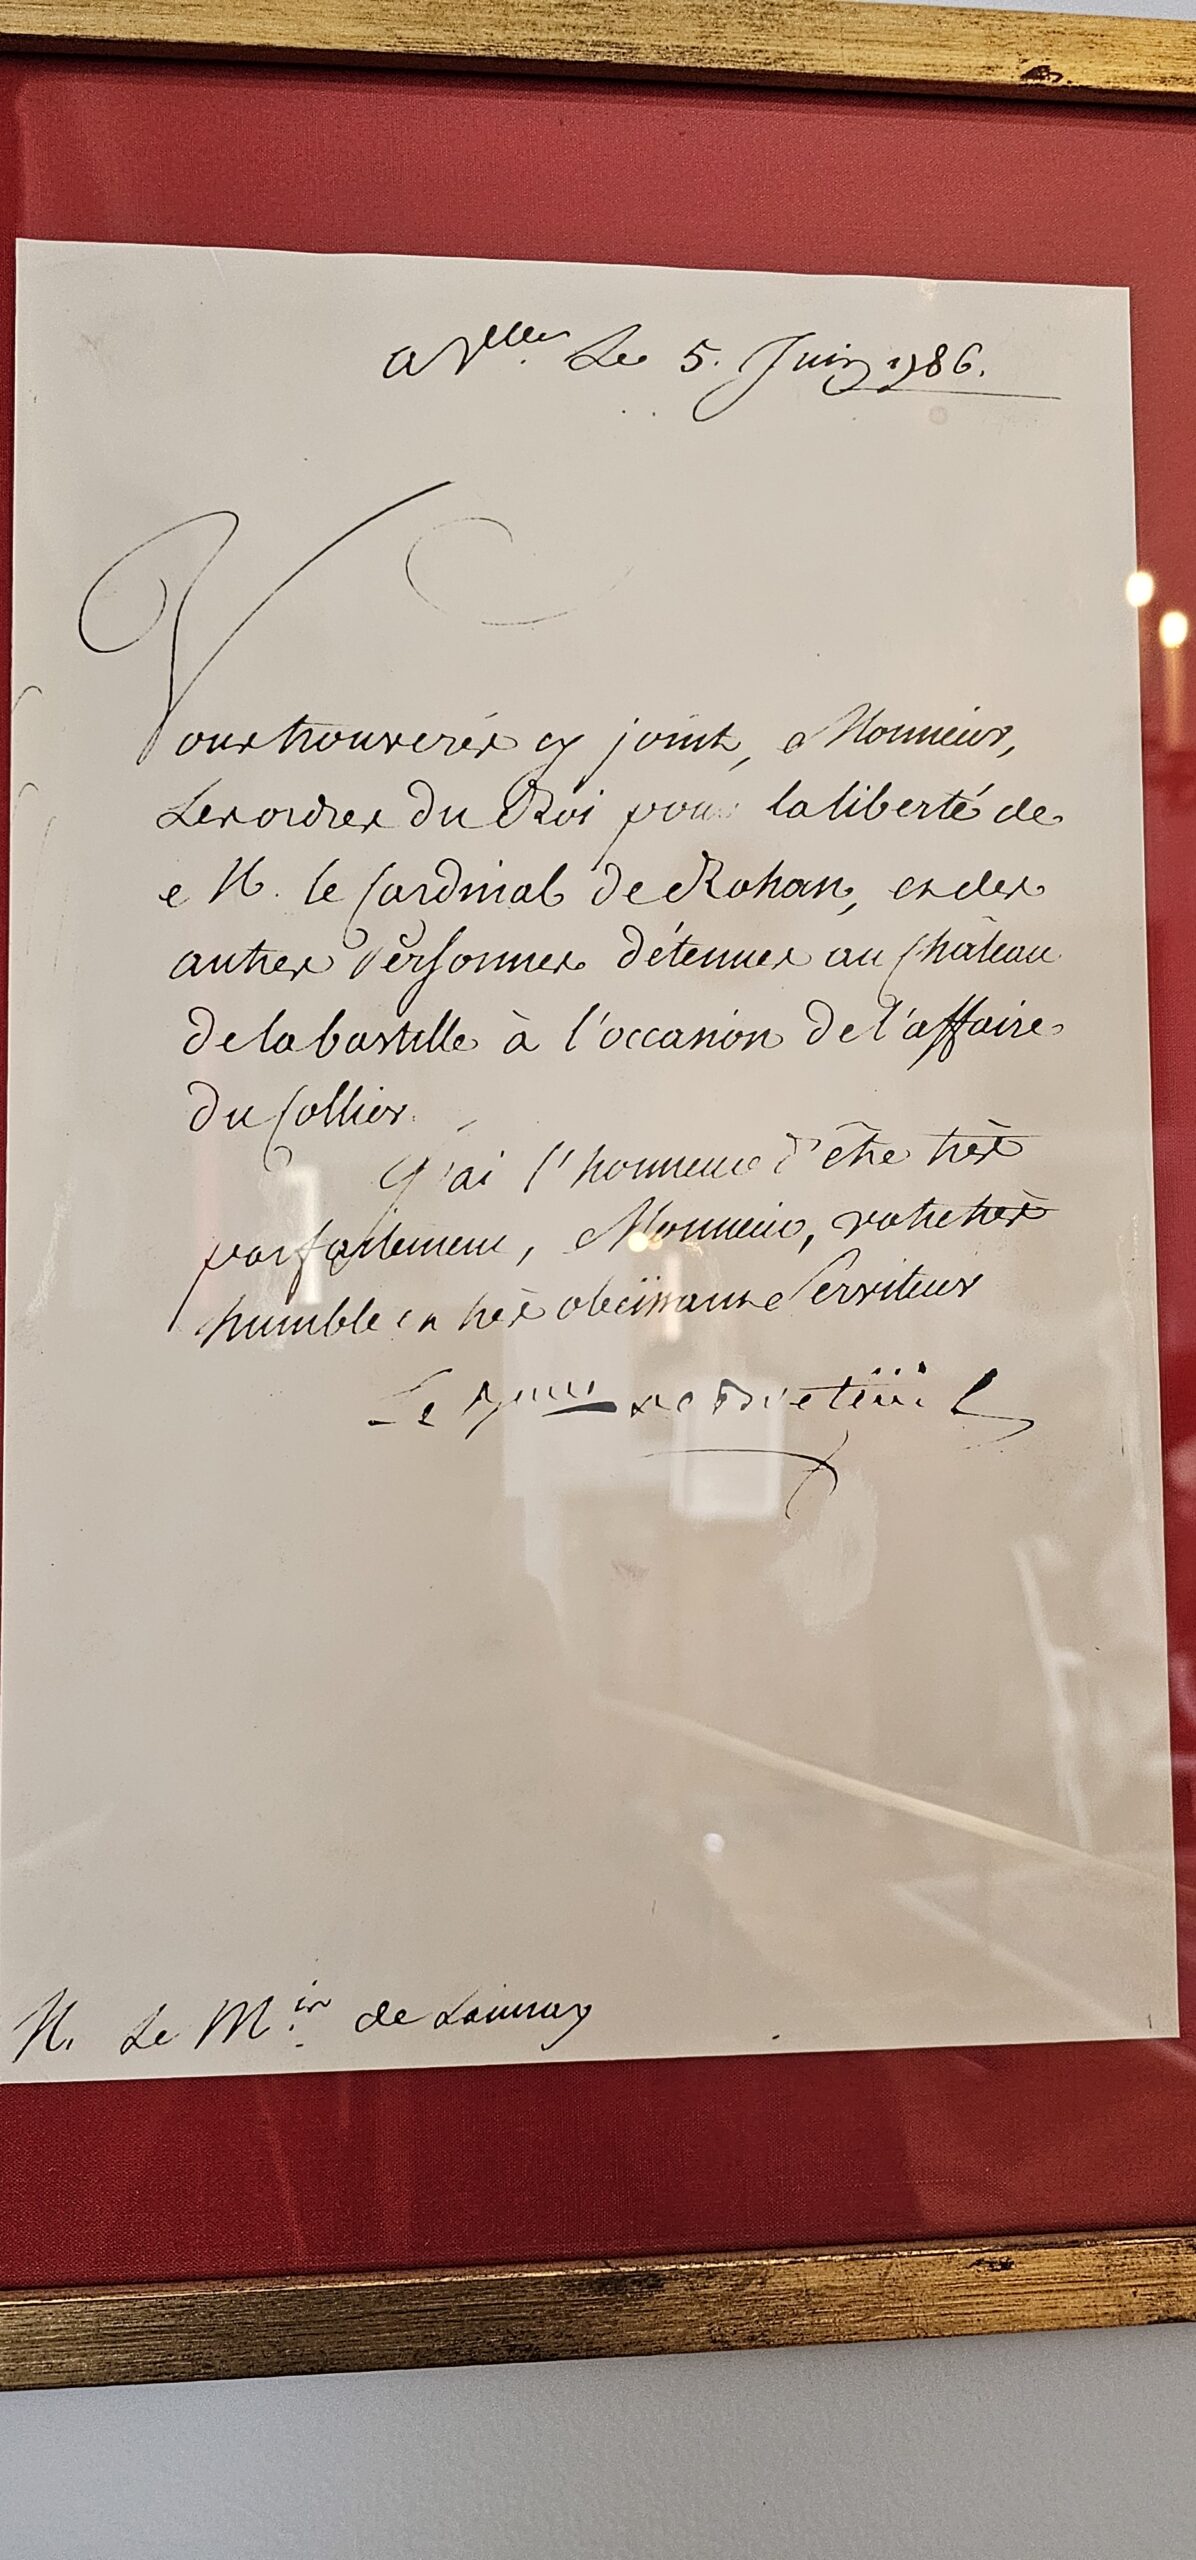 a V.lles Le 5. Juin 1786.
Vous trouverés cy joint, Monsieur,
Les ordres du Roi pour la liberté de
M. le Cardinal de Rohan, et des
autres Personnes détenues au Château
de la bastille à l'occasion de l'affaire
du Collier.
J'ai l'honneur d'être très
parfaitement, Monsieur, votre très
humble et très obéissant Serviteur
Le de Breteüil
M. Le M.is de Launay